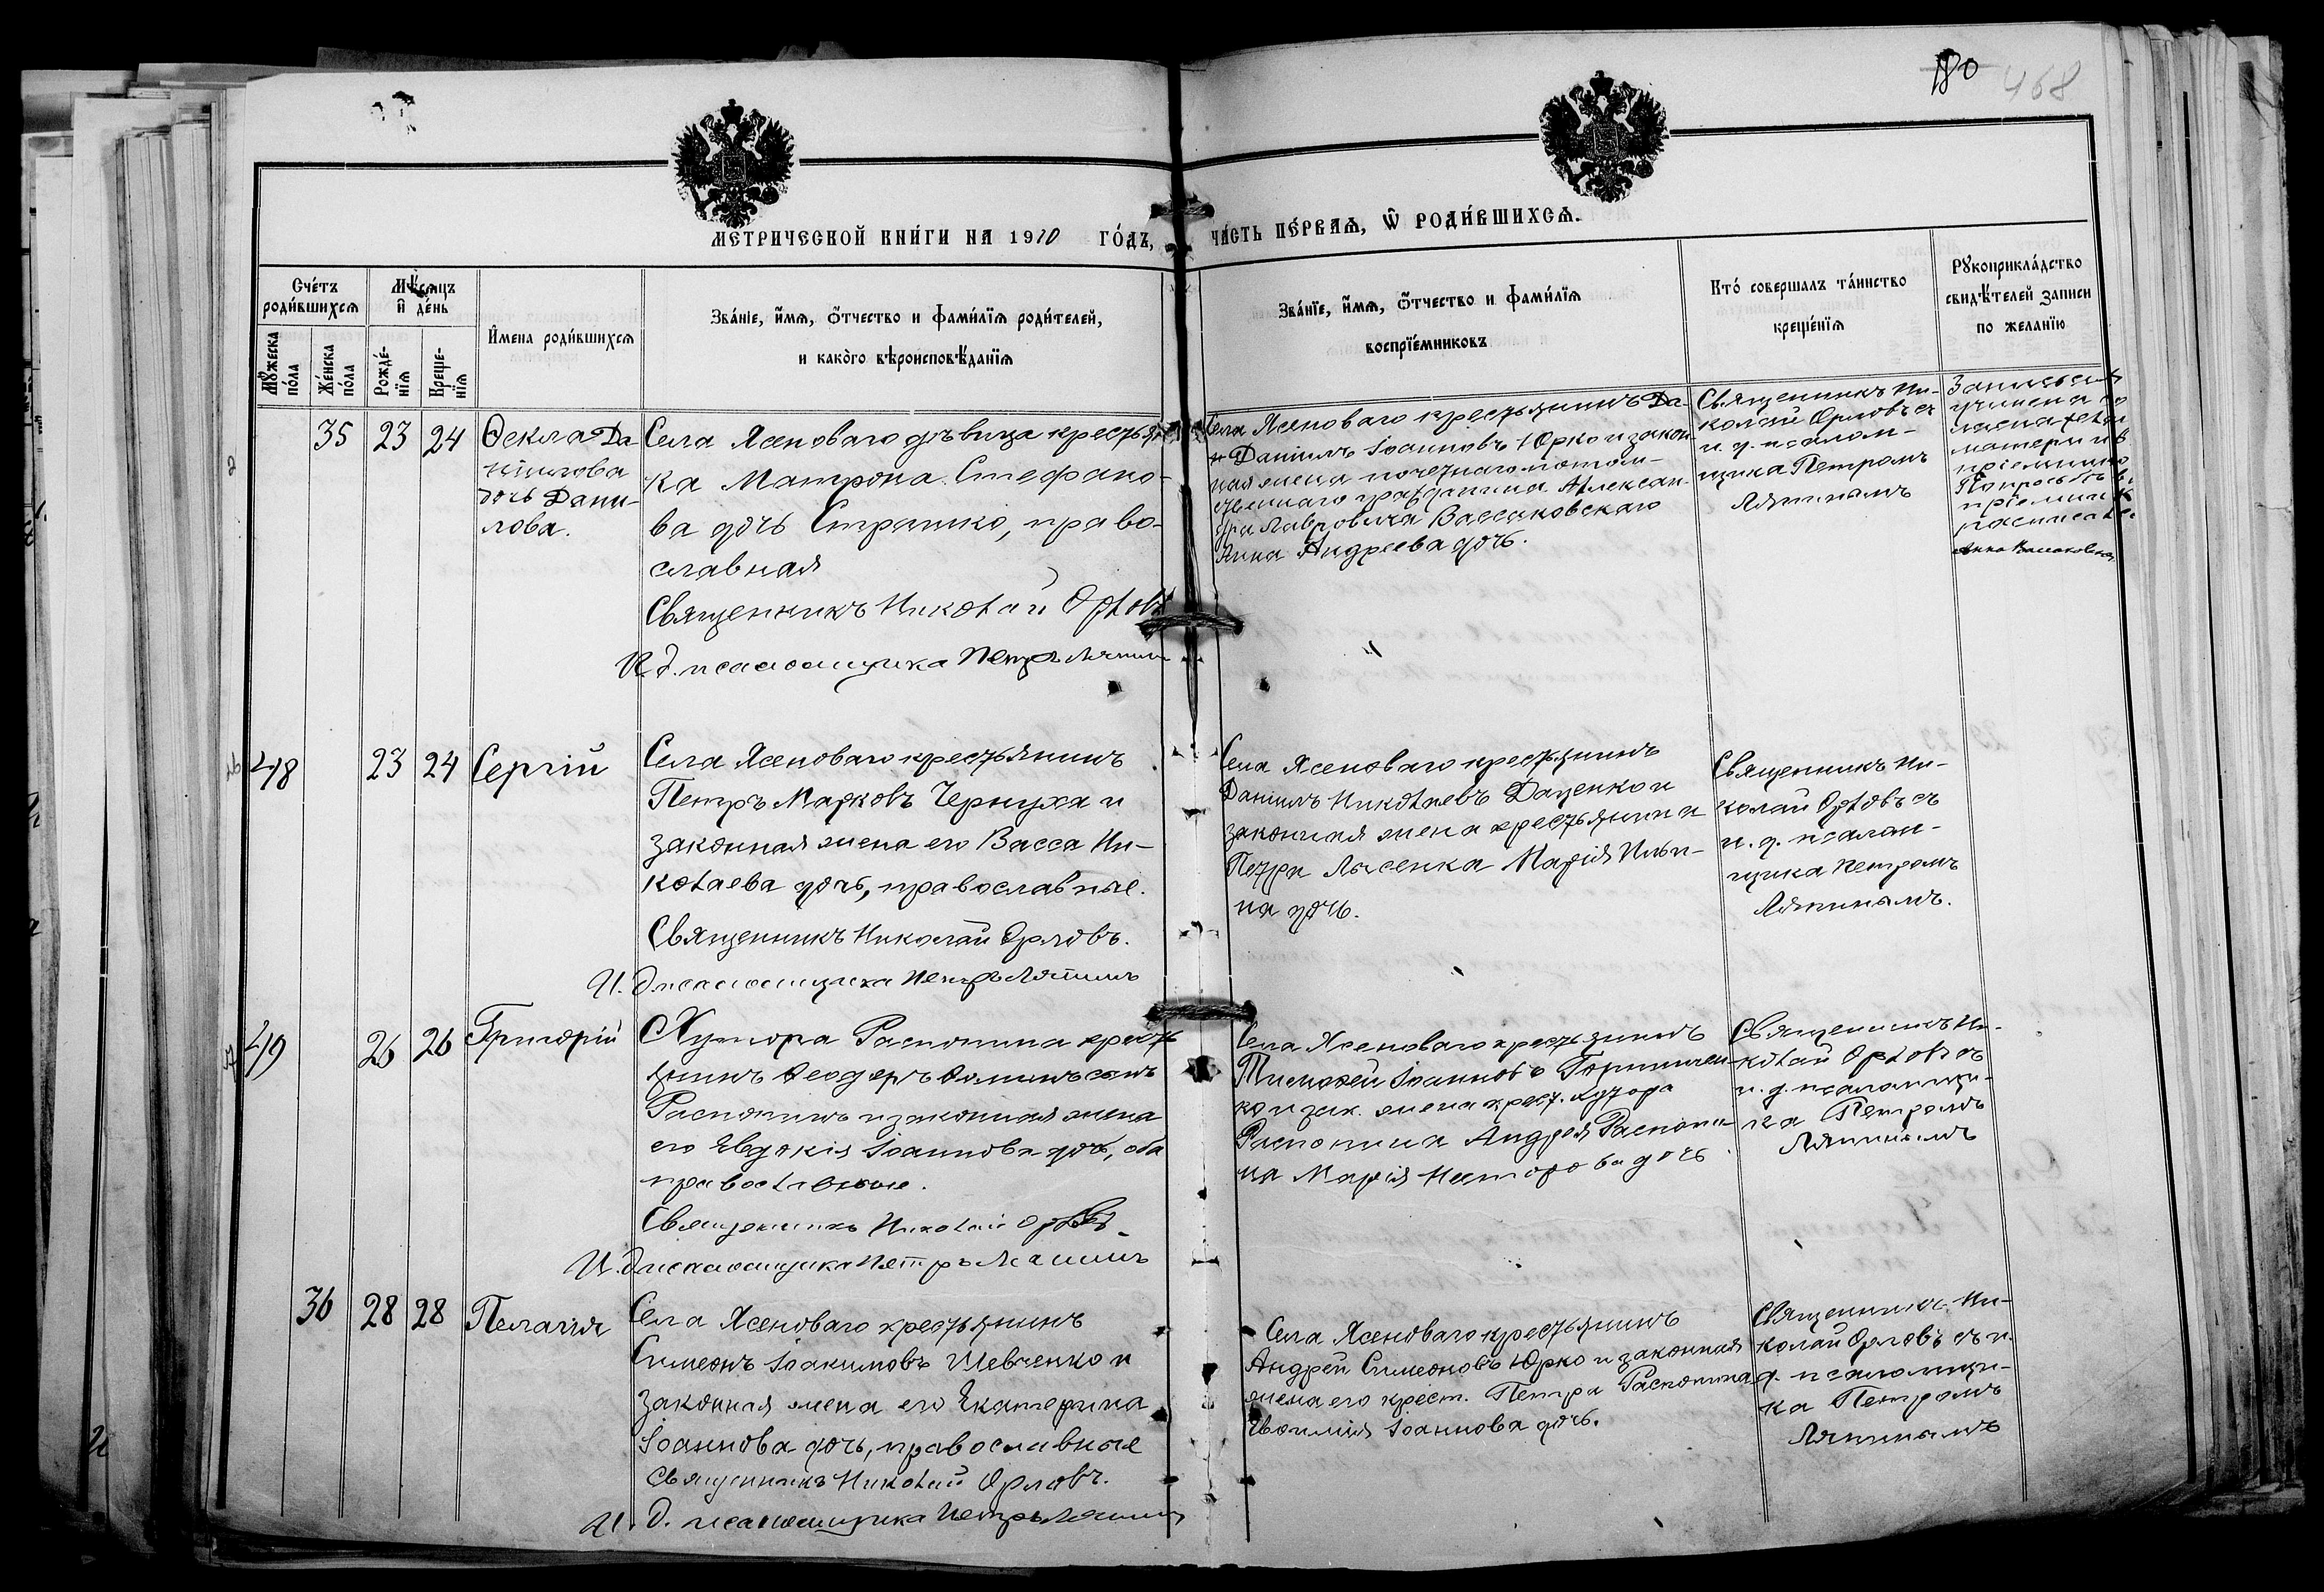 180 468
МЕТРИЧЕСКОЙ КНИ́ГИ НА 1910 ГО́ДЪ,
ЧА́СТЬ ПЕ́РВАѦ, Ѡ҃ РОДИ́ВШИХСѦ.
Сче́тъ роди́вшихсѧ
Мꙋ́жеска по́ла
Же́нска по́ла
Мѣ́сѧцъ и҆ де́нь
Рожде́-
нїѧ
Креще-
нїѧ
И҆мена роди́вшихсѧ
Зва́нїе, и҆́мѧ, ѻ҆́тчество и фами́лїѧ роди́телей,
и како́го вѣроисповѣ́данїѧ
Зва́нїе, и҆́мѧ, ѻ҆́тчество и фами́лїѧ
воспрїе́мниковъ
Кто́ совершалъ та́инство
креще́нїѧ
Рꙋкоприкла́дство
свидѣ́телей записи
по желанїю
35 23 24
Ѳекла Да-
ніилова
дочь Дани-
лова.
Села Ясеноваго дѣвица крестьян-
ка Матрона Стефано-
ва дочь Страшко, право-
славная
Священникъ Николай Орловъ
И. д. псаломщика Петръ Ляпинъ
Села Ясеноваго крестьянинъ Да-
Даніилъ Іоанновъ Юрко и закон-
ная жена почетнаго потом-
ственнаго гражданина Алексан-
дра Лавровича Вассаковскаго
Анна Андреева дочь.
Священникъ Ни-
колай Орловъ съ
и. д. псалом-
щика Петромъ
Ляпинымъ
Запись сія
учинена
матери и
Анна
48 23 24 Сергій
Села Ясеноваго крестьянинъ
Петръ Марковъ Чернуха и
законная жена его Васса Ни-
колаева дочь, православные.
Священникъ Николай Орловъ.
И. д. псаломщика Петръ Ляпинъ
Села Ясеноваго крестьянинъ
Даніилъ Николаевъ Даценко и
законная жена крестьянина
Петра Лысенка Марія Ильи-
на дочь.
Священникъ Ни-
колай Орловъ съ
и. д. псалом-
щика Петромъ
Ляпинымъ.
49 26 26 Григорій
Хутора Распопина кресть-
янинъ Ѳеодоръ Ѳоминъ сынъ
Распопинъ и законная жена
его Евдокія Іоаннова дочь, оба
православные.
Священникъ Николай Орловъ
И. д. псаломщика Петръ Ляпинъ
Села Ясеноваго крестьянинъ
Тимоѳей Іоанновъ
ко и зак. жена крест. хутора
Распопина Андрея Распопи-
на Марія Несторова дочь.
Священникъ Ни-
колай Орловъ съ
и. д. псаломщи-
ка Петромъ
Ляпинымъ
36 28 28 Пелагія
Села Ясеноваго крестьянинъ
Симеонъ Іоакимовъ Шевченко и
законная жена его Екатерина
Іоаннова дочь, православные
Священникъ Николай Орловъ.
И. д. псаломщика Петръ Ляпинъ
Села Ясеноваго крестьянинъ
Андрей Симеоновъ Юрко и законная
жена его крест. Петра Распопина
Евфимія Іоаннова дочь.
Священникъ Ни-
колай Орловъ съ и.
д. псаломщи-
ка Петромъ
Ляпинымъ